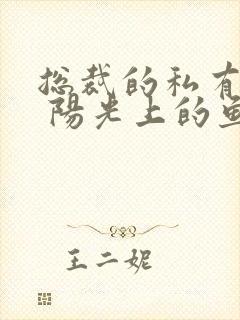 总裁的私有
陽光上的鱼
王二妮